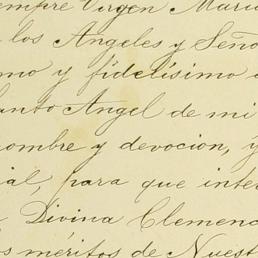 siempre Virgen María
a los Angeles y Seño
omo y fidelísimo
anto Angel de mi
nombre y devocion, y
ial, para que inter
a Divina Clemenc
os méritos de Nuest